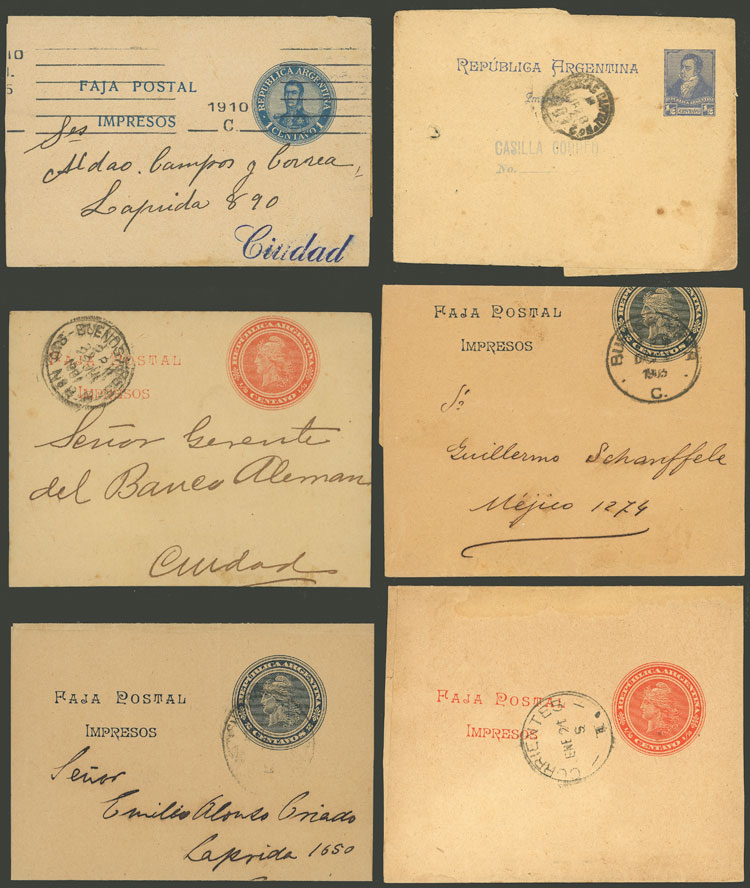 FAJA POSTAL
IMPRESOS
REPUBLICA ARGENTINA
1 CENTAVO 1
1910
C.
Sres
Aldao, Campos y Correa,
Laprida 890
Ciudad
REPÚBLICA ARGENTINA
CASILLA CORREO
No.
FAJA POSTAL
IMPRESOS
REPUBLICA ARGENTINA
½ CENTAVO ½
BUENOS AIRES
Señor Gerente
del Banco Aleman
Ciudad
FAJA POSTAL
IMPRESOS
CENTAVOS
C.
Sr.
Guillermo
Méjico 1274
FAJA POSTAL
IMPRESOS
REPUBLICA ARGENTINA
CENTAVOS
Señor
Emilio Alonso Criado
Laprida 1650
FAJA POSTAL
IMPRESOS
REPUBLICA ARGENTINA
½ CENTAVO ½
CORRIENTES
ENE 24